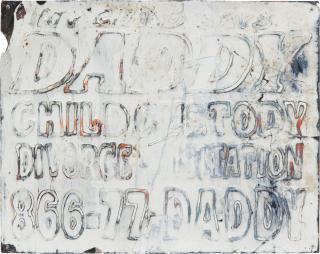 DADDY
CHILD CUSTODY
DIVORCE VISITATION
866-77-DADDY